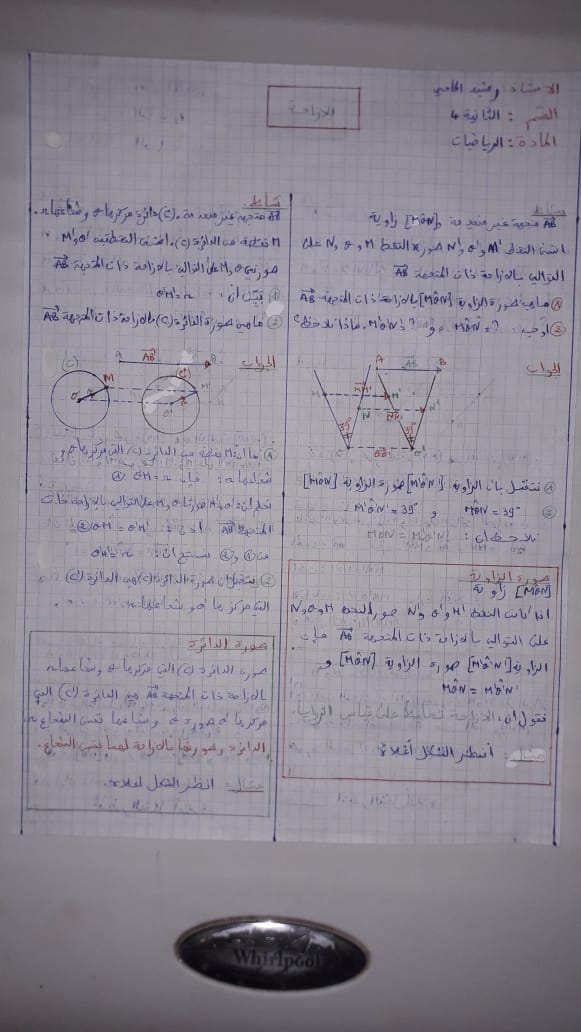 الاستاذ: رشيد
القسم : الثانية 4
المادة: الرياضيات
الازاحة
نشاط
AB متجهة غير منعدمة و [MÔN] زاوية
أنشئ النقط M' و O' و N' صور النقط M و O و N على
التوالي بالازاحة ذات المتجهة AB
① ما هي صورة الزاوية [MÔN] بالازاحة ذات المتجهة AB
② أوجب : ?= MÔN و ?= M'Ô'N' ماذا تلاحظ؟
الجواب
A AB B
M MM' M'
N NN' N'
39° 39°
O OO' O'
① نتقبل بأن الزاوية [M'Ô'N'] صورة الزاوية [MÔN]
② MÔN = 39° و M'Ô'N' = 39°
نلاحظ أن : MÔN = M'Ô'N'
صورة الزاوية
[MÔN] زاوية
اذا كانت النقط M' و O' و N' صور النقط M و O و N
على التوالي بالازاحة ذات المتجهة AB فإن
الزاوية [M'Ô'N'] صورة الزاوية [MÔN] و
MÔN = M'Ô'N'
نقول أن : الازاحة تحافظ على قياس الزوايا.
مثال : أنظر الشكل أعلاه
نشاط:
AB متجهة غير منعدمة. (C) دائرة مركزها O و شعاعها r.
M نقطة من الدائرة (C). أنشئ النقطتين O' و M'
صورتي O و M على التوالي بالازاحة ذات المتجهة AB
① بين أن : O'M' = r
② ما هي صورة الدائرة (C) بالازاحة ذات المتجهة AB
الجواب
A AB B
(C) (C')
O r M O' r M'
① بما أن M نقطة من الدائرة (C) التي مركزها O و
شعاعها r : فإن OM = r ①
نعلم أن O' و M' صورتا O و M على التوالي بالازاحة ذات
المتجهة AB اذن : OM = O'M' ②
من ① و ② نستنتج أن : O'M' = r
② نتقبل أن صورة الدائرة (C) هي الدائرة (C')
التي مركزها O' و شعاعها r
صورة الدائرة
صورة الدائرة (C) التي مركزها O و شعاعها r
بالازاحة ذات المتجهة AB هي الدائرة (C') التي
مركزها O' صورة O و شعاعها نفس الشعاع r.
الدائرة و صورتها بالازاحة لهما نفس الشعاع.
مثال : انظر الشكل أعلاه.
Whirlpool